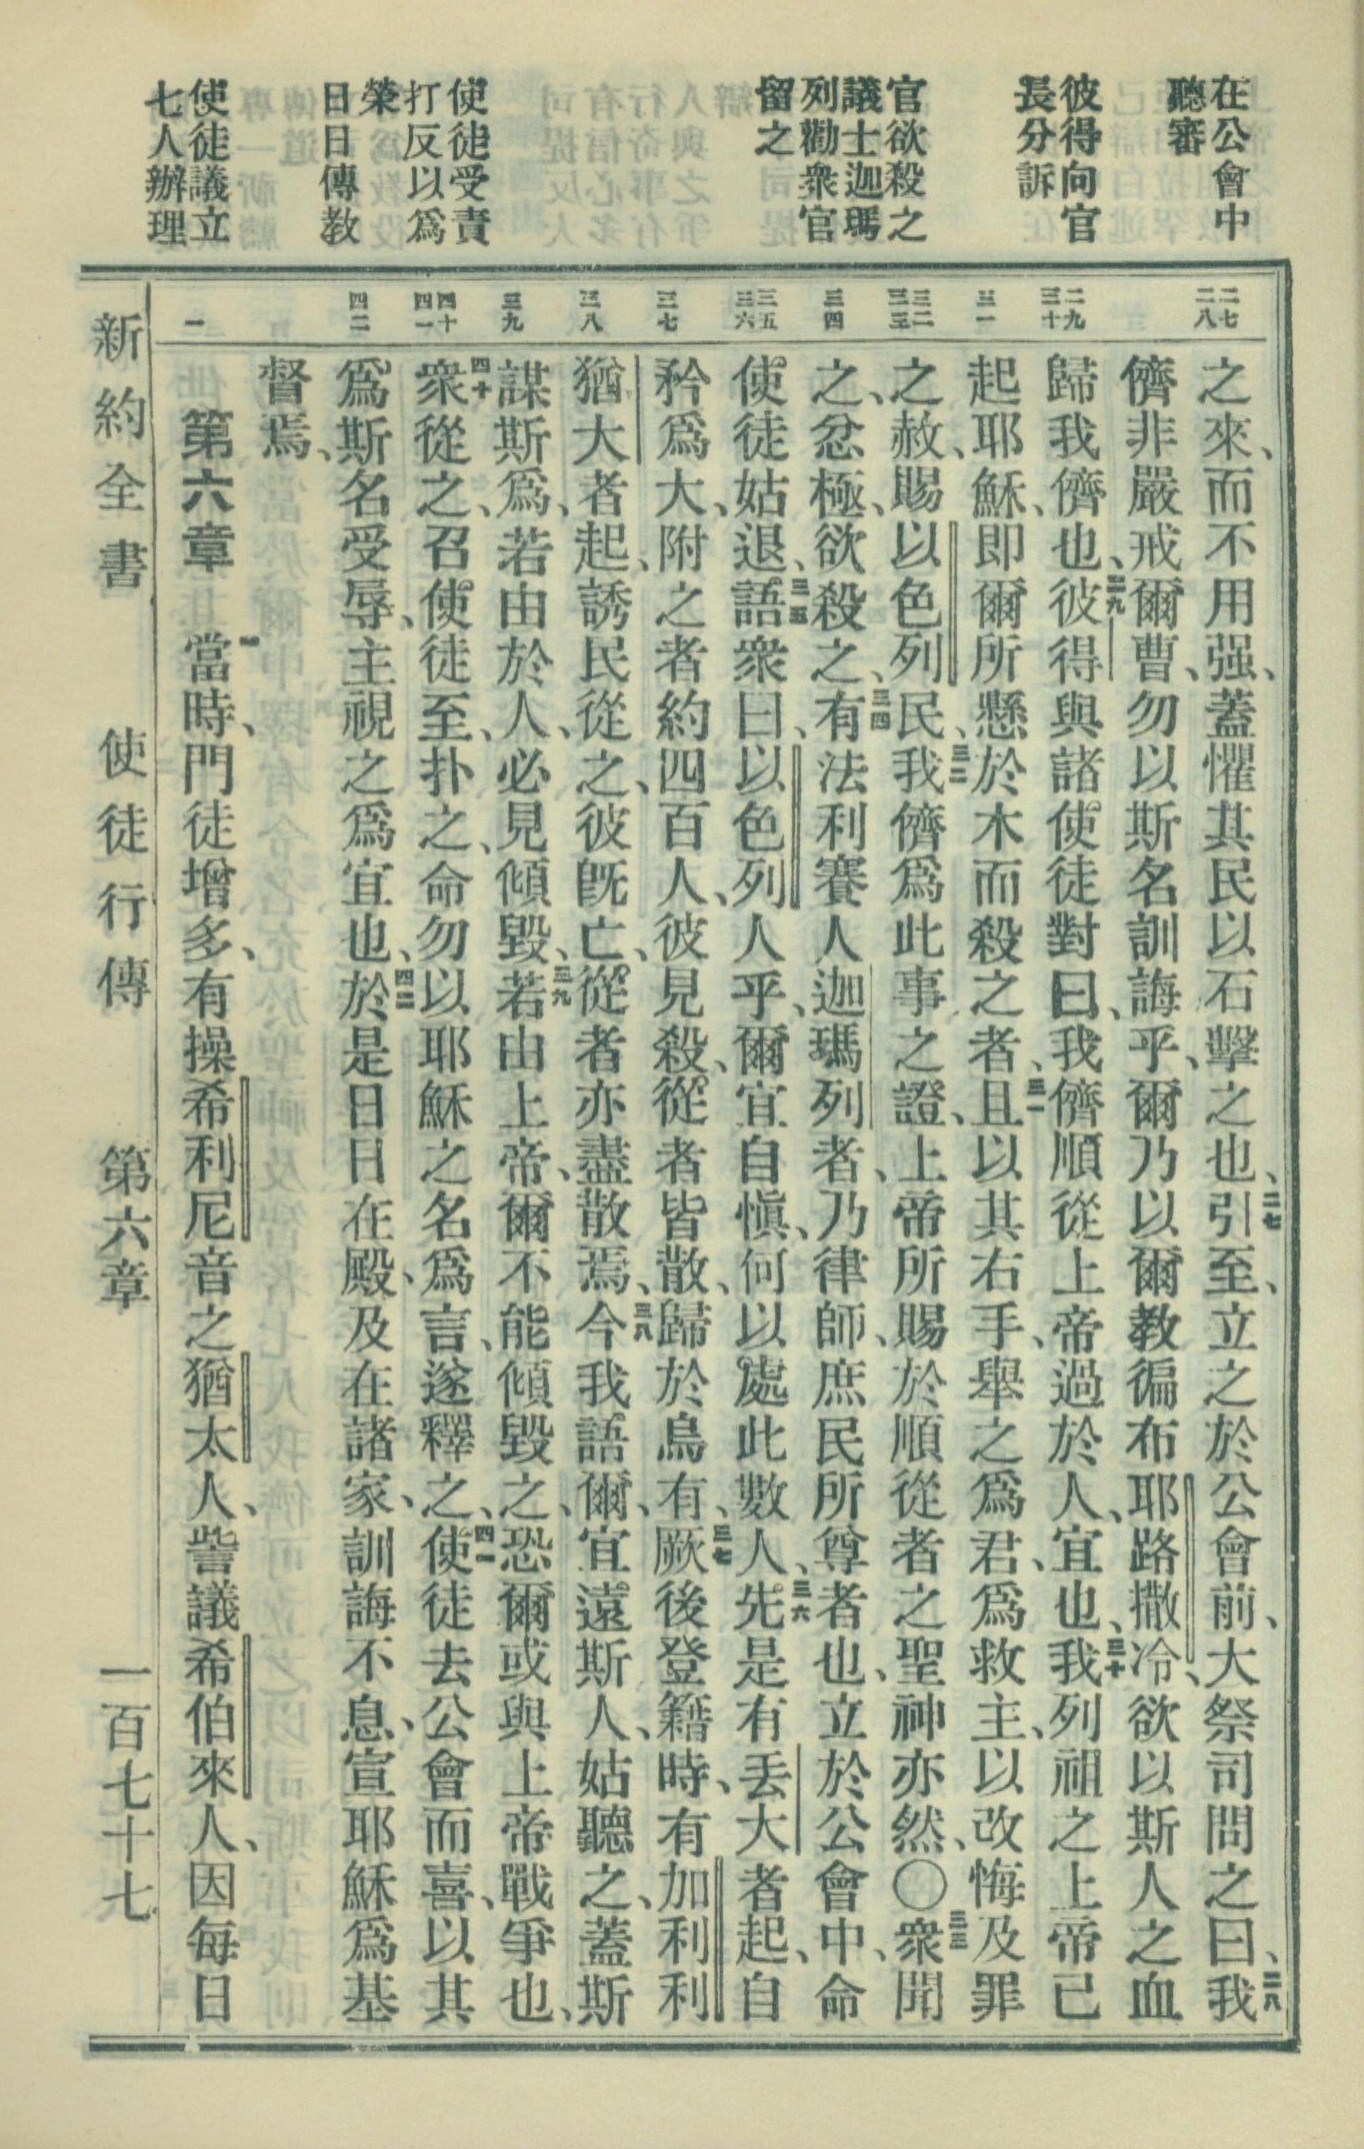 在公會中
聽審
彼得向官
長分訴
官欲殺之
議士迦瑪
列勸衆官
留之
使徒受責
打反以爲
榮
日日傳教
使徒議立
七人辦理
二七
二八
二九
三十
三一
三二
三三
三四
三五
三六
三七
三八
三九
四十
四一
四二
一
之來、而不用强、蓋懼其民以石擊之也、二七引至、立之於公會前、大祭司問之曰、二八我
儕非嚴戒爾曹、勿以斯名訓誨乎、爾乃以爾教徧布耶路撒冷、欲以斯人之血
歸我儕也、二九彼得與諸使徒對曰、我儕順從上帝過於人、宜也、三十我列祖之上帝已
起耶穌、即爾所懸於木而殺之者、三一且以其右手、舉之爲君、爲救主、以改悔及罪
之赦、賜以色列民、三二我儕爲此事之證、上帝所賜於順從者之聖神亦然、〇三三衆聞
之、忿極、欲殺之、三四有法利賽人迦瑪列者、乃律師、庶民所尊者也、立於公會中、命
使徒姑退、三五語衆曰、以色列人乎、爾宜自愼、何以處此數人、三六先是有丢大者起、自
矜爲大、附之者約四百人、彼見殺、從者皆散、歸於烏有、三七厥後登籍時、有加利利
猶大者起、誘民從之、彼旣亡、從者亦盡散焉、三八今我語爾、宜遠斯人、姑聽之、蓋斯
謀斯爲、若由於人、必見傾毀、三九若由上帝、爾不能傾毀之、恐爾或與上帝戰爭也、
四十衆從之、召使徒至、扑之、命勿以耶穌之名爲言、遂釋之、四一使徒去公會而喜、以其
爲斯名受辱、主視之爲宜也、四二於是日日在殿、及在諸家、訓誨不息、宣耶穌爲基
督焉、
第六章 一當時、門徒增多、有操希利尼音之猶太人、訾議希伯來人、因每日
新約全書 使徒行傳 第六章 一百七十七